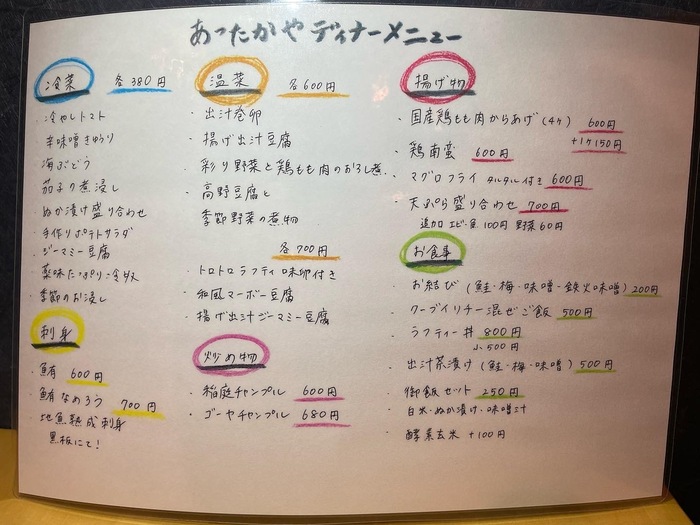 あったかやディナーメニュー
冷菜 各380円
・冷やしトマト
・辛味噌きゅうり
・海ぶどう
・茄子の煮浸し
・ぬか漬け盛り合わせ
・手作りポテトサラダ
・ジーマミー豆腐
・薬味たっぷり冷奴
・季節のお浸し
刺身
・鮪 600円
・鮪なめろう 700円
・地魚熟成刺身
黒板にて!
温菜 各600円
・出汁巻卵
・揚げ出汁豆腐
・彩り野菜と鶏もも肉のおろし煮
・高野豆腐と
季節野菜の煮物
各700円
・トロトロラフティ味卵付き
・和風マーボー豆腐
・揚げ出汁ジーマミー豆腐
炒め物
・稲庭チャンプル 600円
・ゴーヤチャンプル 680円
揚げ物
・国産鶏もも肉からあげ(4ヶ) 600円
+1ヶ150円
・鶏南蛮 600円
・マグロフライ タルタル付き 600円
・天ぷら盛り合わせ 700円
追加 エビ・魚 100円 野菜 60円
お食事
・お結び (鮭・梅・味噌・鉄火味噌) 200円
・クーブイリチー混ぜご飯 500円
・ラフティー丼 800円
小 500円
・出汁茶漬け (鮭・梅・味噌) 500円
・御飯セット 250円
・白米・ぬか漬け・味噌汁
・酵素玄米 +100円